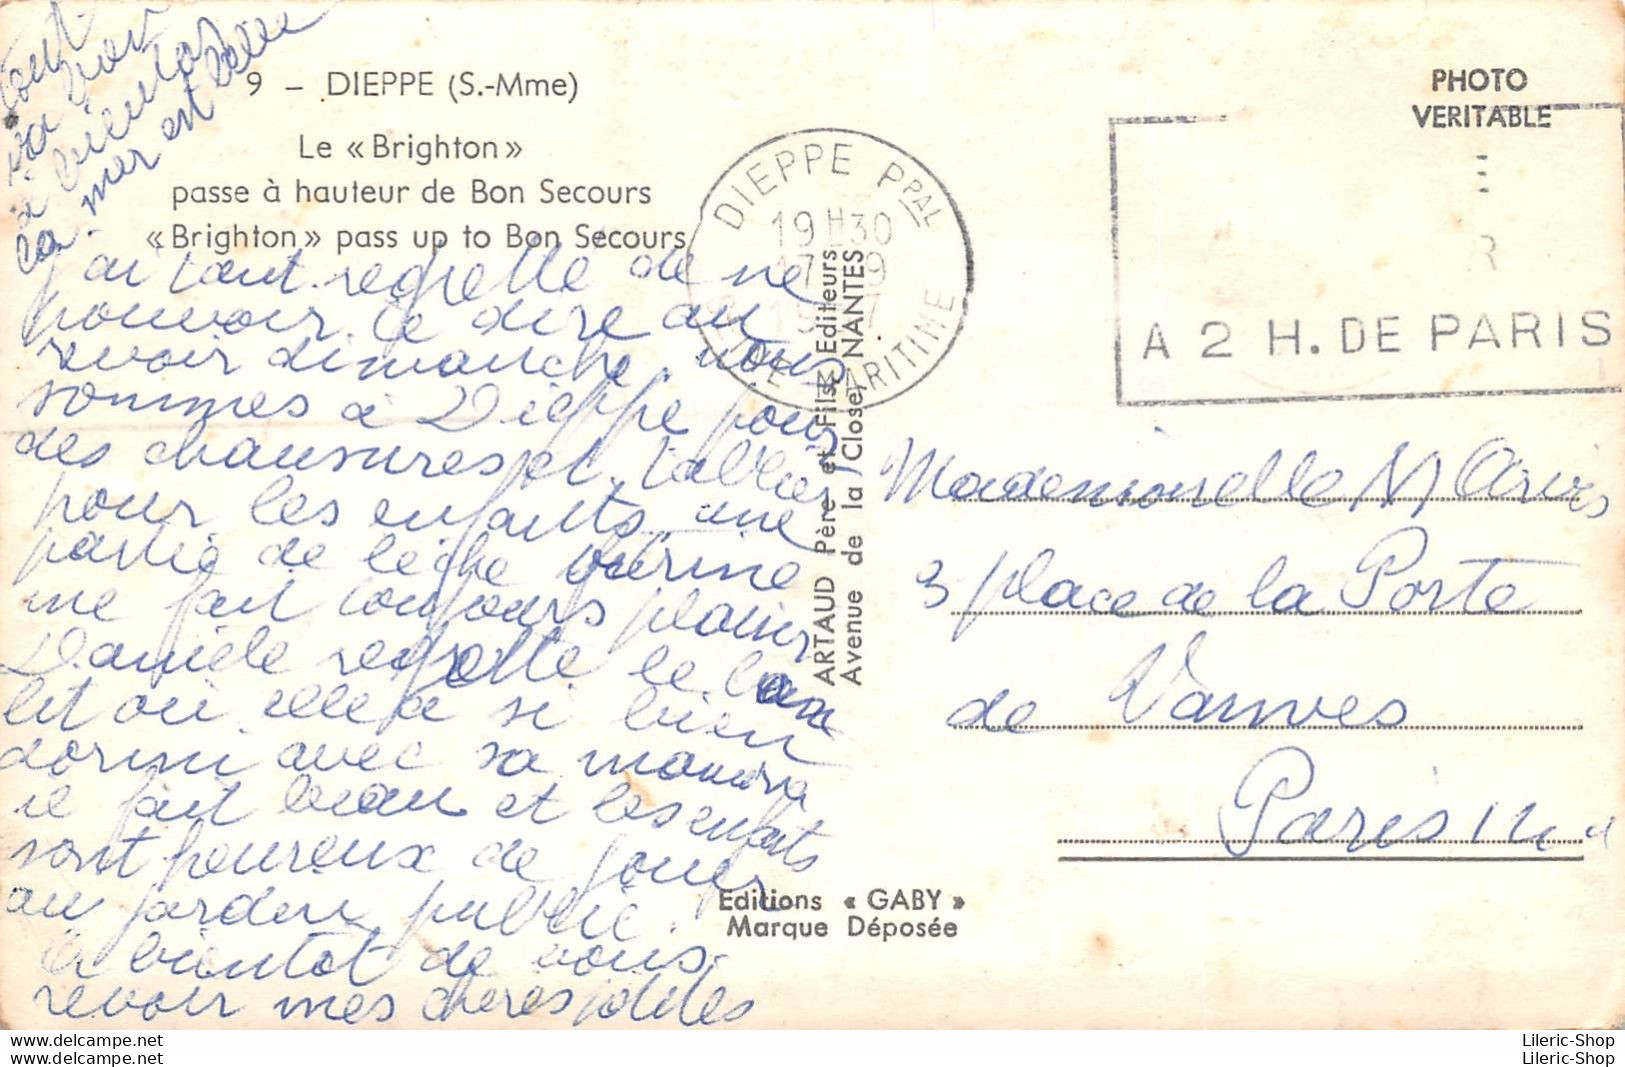 9 – DIEPPE (S.-Mme)
Le « Brighton »
passe à hauteur de Bon Secours
« Brighton » pass up to Bon Secours
PHOTO
VERITABLE
DIEPPE PPAL
19H30
17 9
19 7
SEINE MARITIME
A 2 H. DE PARIS
j'ai tant regretté de ne
pouvoir te dire au
revoir dimanche. nous
sommes à Dieppe pour
des chaussures et tablier
pour les enfants une
partie de lèche vitrine
me fait toujours plaisir
Danièle regrette le
lit où elle a si bien
dormi avec sa
il fait beau et les enfants
sont heureux de jouer
au jardin public.
à bientot de vous
revoir mes cheres
à bientot
la mer est belle
ARTAUD Père et Fils, Editeurs
Avenue de la Close, NANTES
Mademoiselle
3 place de la Porte
de Vanves
Paris
Editions « GABY »
Marque Déposée
Lileric-Shop
Lileric-Shop